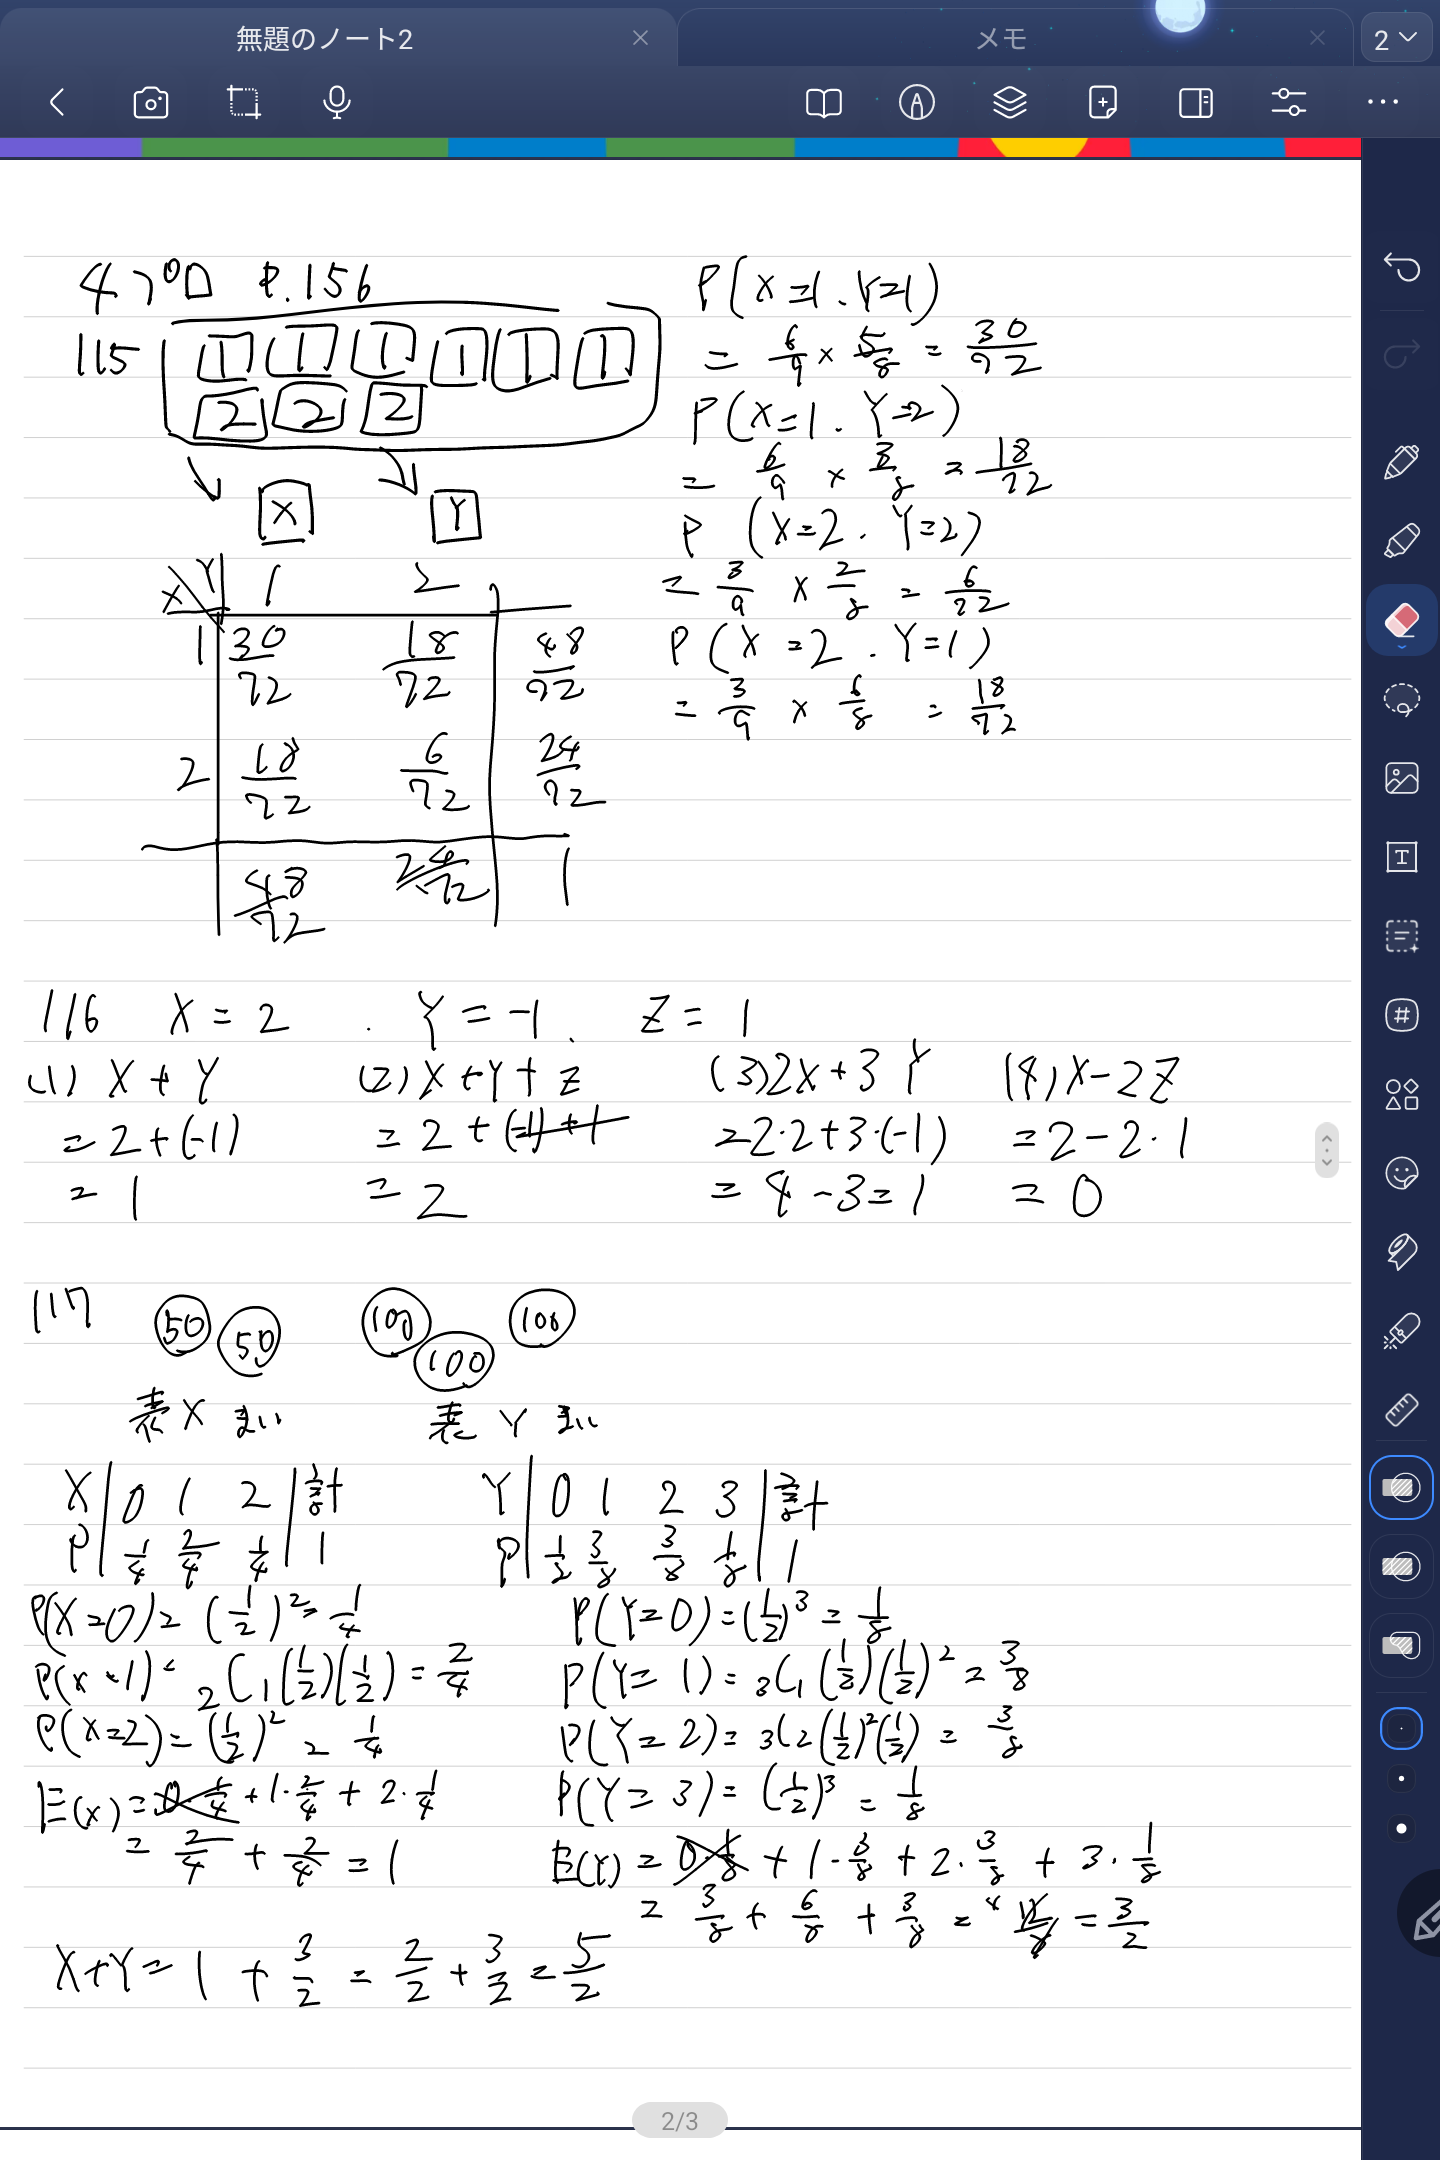 無題のノート2
メモ
2
4プロ P.156
115
1 1 1 1 1 1
2 2 2
X Y
X Y 1 2
1 30/72 18/72 48/72
2 18/72 6/72 24/72
48/72 24/72 1
P(X=1. Y=1)
= 6/9 × 5/8 = 30/72
P(X=1. Y=2)
= 6/9 × 3/8 = 18/72
P (X=2. Y=2)
= 3/9 × 2/8 = 6/72
P (X=2. Y=1)
= 3/9 × 6/8 = 18/72
116 X=2. Y=-1. Z=1
(1) X+Y
=2+(-1)
=1
(2) X+Y+Z
=2+(-1)+1
=2
(3) 2X+3Y
=2·2+3·(-1)
=4-3=1
(4) X-2Z
=2-2·1
=0
117
50 50 100 100 100
表 X まい 表 Y まい
X 0 1 2 計
P 1/4 2/4 1/4 1
Y 0 1 2 3 計
P 1/8 3/8 3/8 1/8 1
P(X=0)=(1/2)²=1/4
P(X=1)=₂C₁(1/2)(1/2)=2/4
P(X=2)=(1/2)²=1/4
E(X)=0·1/4+1·2/4+2·1/4
=2/4+2/4=1
P(Y=0)=(1/2)³=1/8
P(Y=1)=₃C₁(1/2)(1/2)²=3/8
P(Y=2)=₃C₂(1/2)²(1/2)=3/8
P(Y=3)=(1/2)³=1/8
E(Y)=0·1/8+1·3/8+2·3/8+3·1/8
=3/8+6/8+3/8=12/8=3/2
X+Y=1+3/2=2/2+3/2=5/2
2/3